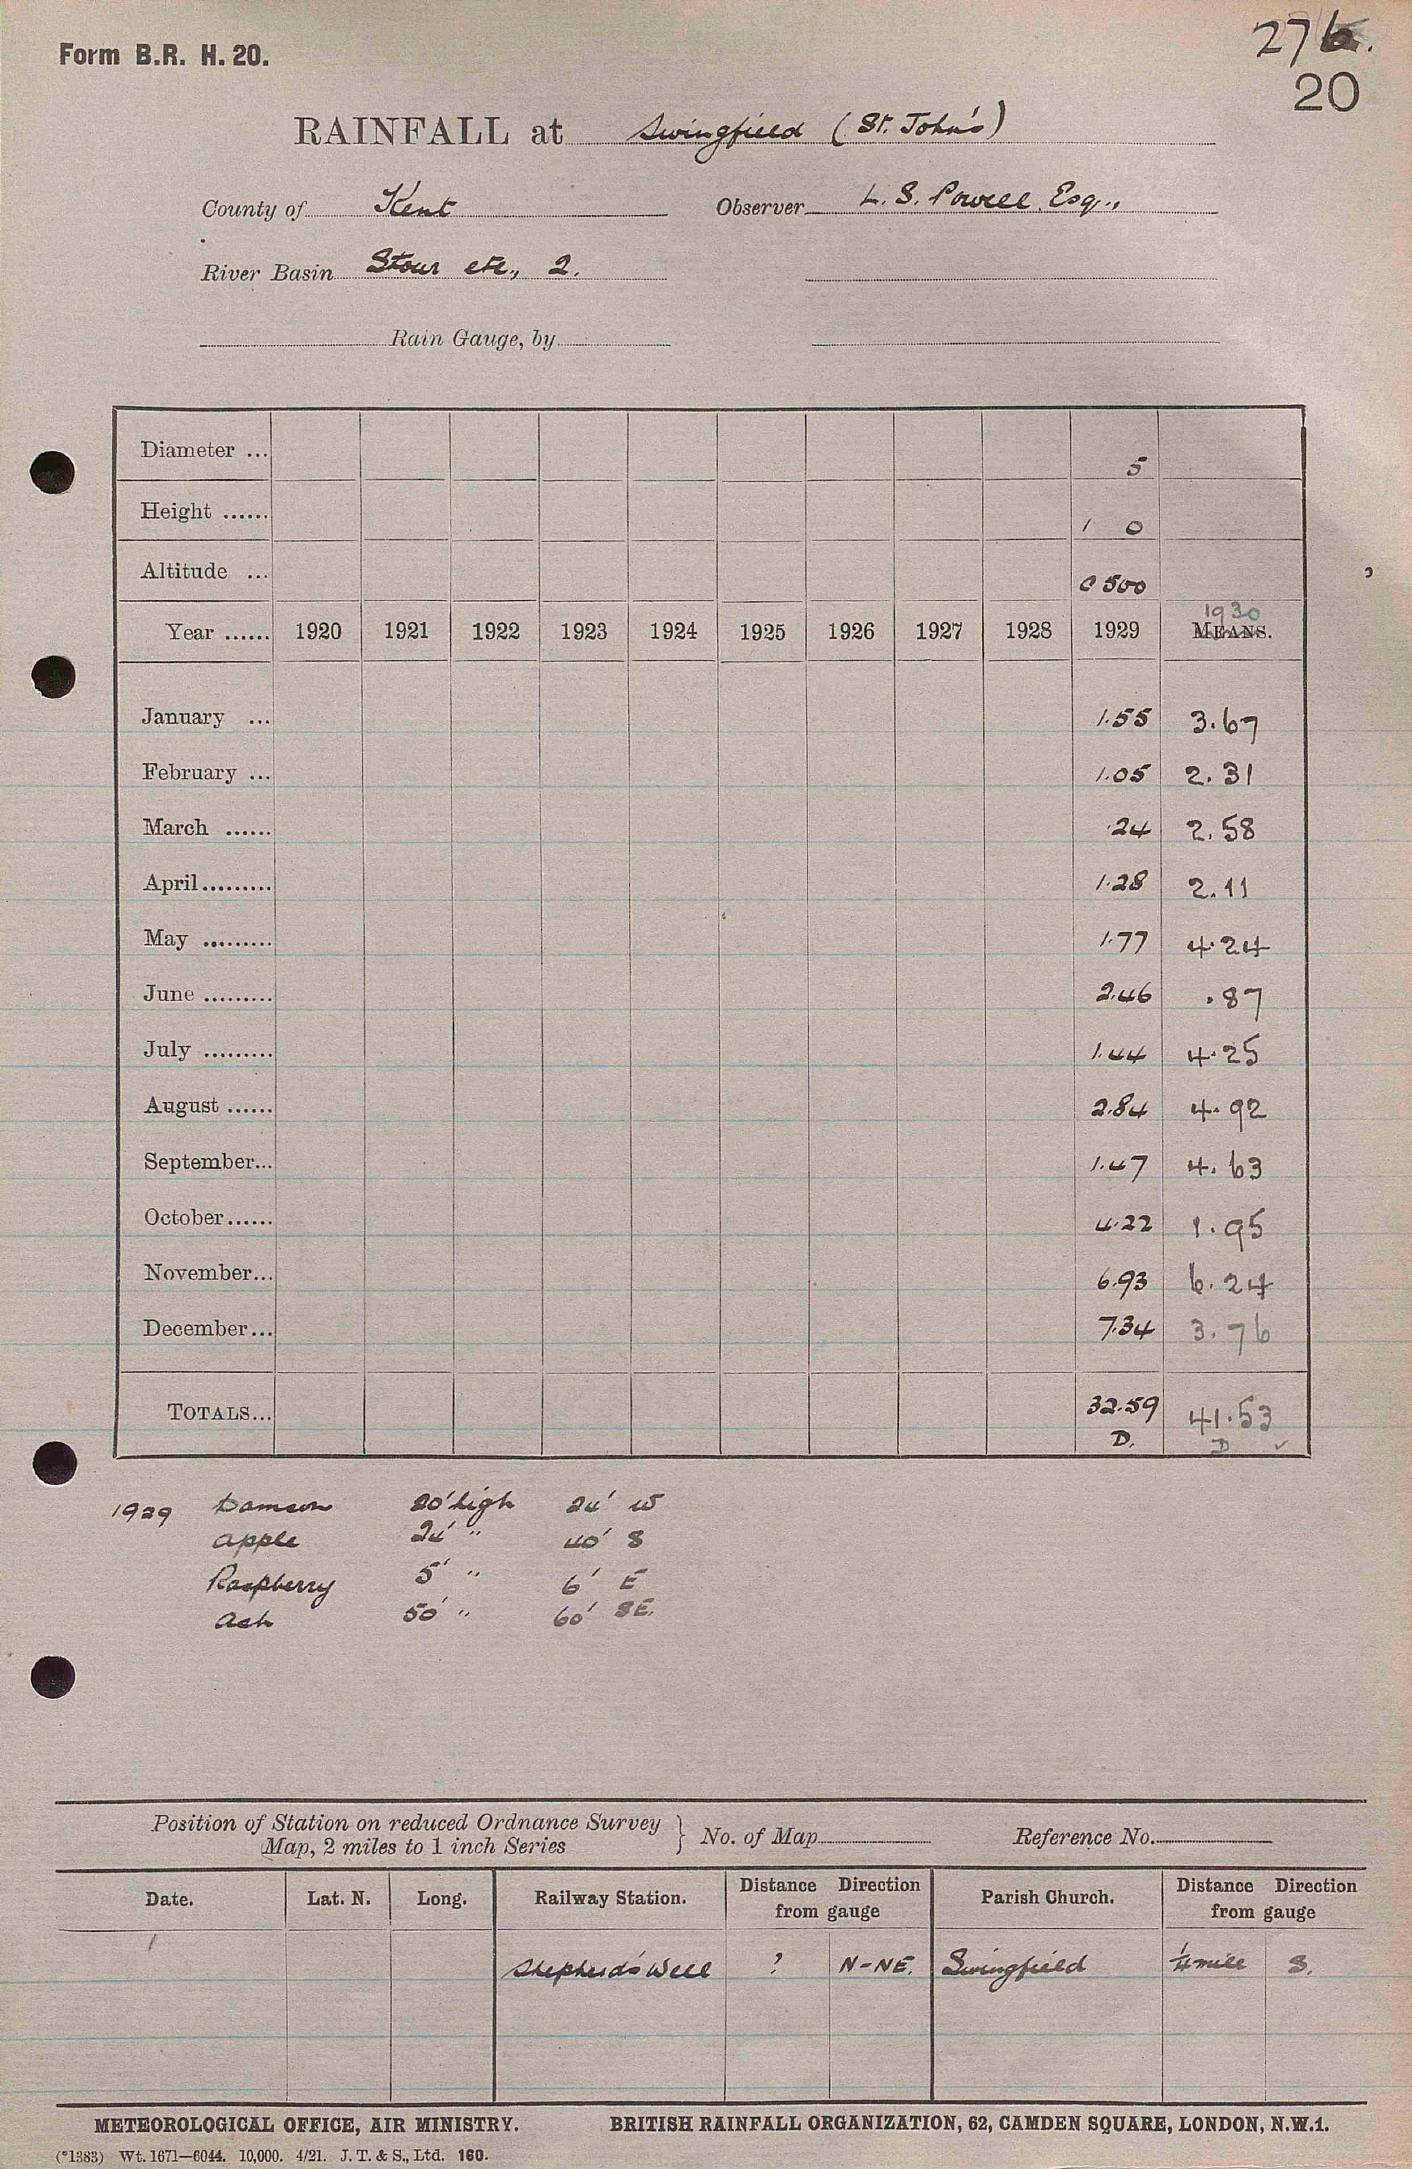 Form B.R. H. 20.
276.
20
RAINFALL at Swingfield (St. John's)
County of Kent Observer L. S. Powell Esq.,
River Basin Stour etc., 2.
Rain Gauge, by
Diameter ... 5
Height ...... 1 0
Altitude ... c 500
1930
Year ...... 1920 1921 1922 1923 1924 1925 1926 1927 1928 1929 MEANS.
January ... 1.55 3.67
February ... 1.05 2.31
March ...... .24 2.58
April......... 1.28 2.11
May ......... 1.77 4.24
June ......... 2.46 .87
July ......... 1.44 4.25
August ...... 2.84 4.92
September... 1.47 4.63
October...... 4.22 1.95
November... 6.93 6.24
December... 7.34 3.76
TOTALS... 32.59 41.53
D. D ✓
1929 Damson 20' high 24' W
apple 24' " 40' S
Raspberry 5' " 6' E
Ash 50' " 60' SE.
Position of Station on reduced Ordnance Survey
Map, 2 miles to 1 inch Series } No. of Map Reference No.
Date. Lat. N. Long. Railway Station. Distance Direction from gauge Parish Church. Distance Direction from gauge
Shepherd's Well ? N-NE. Swingfield ¼ mile S.
METEOROLOGICAL OFFICE, AIR MINISTRY. BRITISH RAINFALL ORGANIZATION, 62, CAMDEN SQUARE, LONDON, N.W.1.
(*1383) Wt. 1671—6044. 10,000. 4/21. J. T. & S., Ltd. 160.